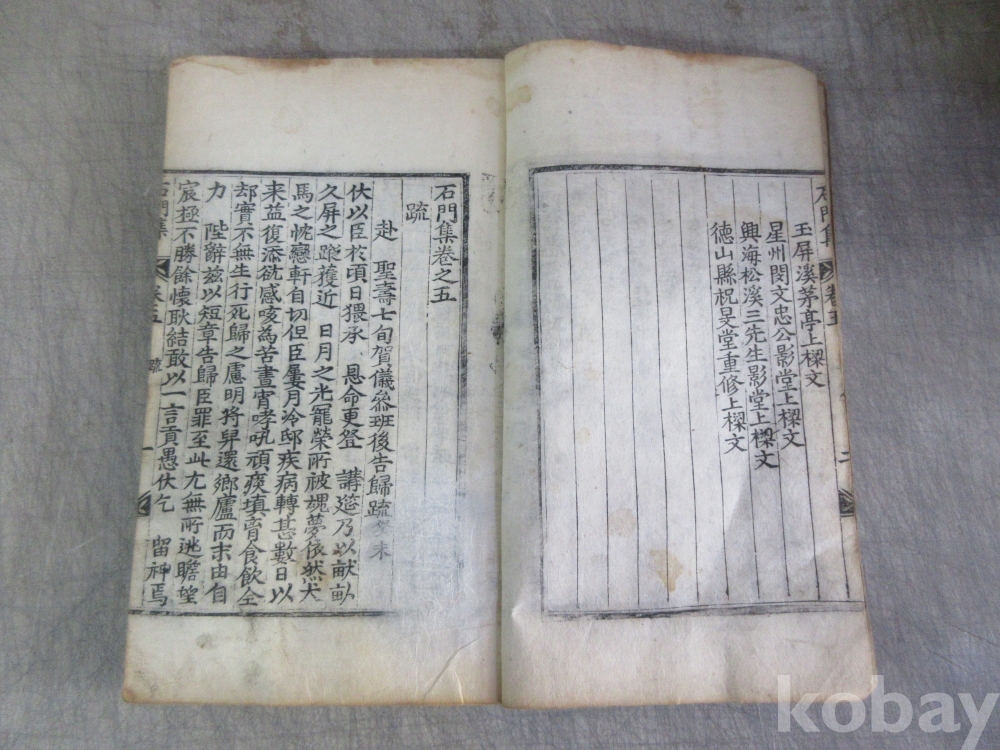 石門集 卷五 二
玉屏溪茅亭上樑文
星州閔文忠公影堂上樑文
興海松溪三先生影堂上樑文
德山縣祝旻堂重修上樑文
石門集卷之五
疏
赴 聖壽七旬賀儀參班後告歸疏
伏以臣於頃日猥承 恩命更登 講筵乃以畎畝
久屏之蹤獲近 日月之光寵榮所被魂夢依然犬
馬之忱戀軒自切但臣屢月冷邸疾病轉甚數日以
来益復添欬感唆為苦晝宵哮吼頑痰填膏食飲全
却實不無生行死歸之慮明将舁還鄉廬而末由自
力 陛辭玆以短章告歸臣罪至此尤無所逃瞻望
宸極不勝餘懷耿結敢以一言貢愚伏乞 留神焉
石門集 卷五 疏 一
kobay